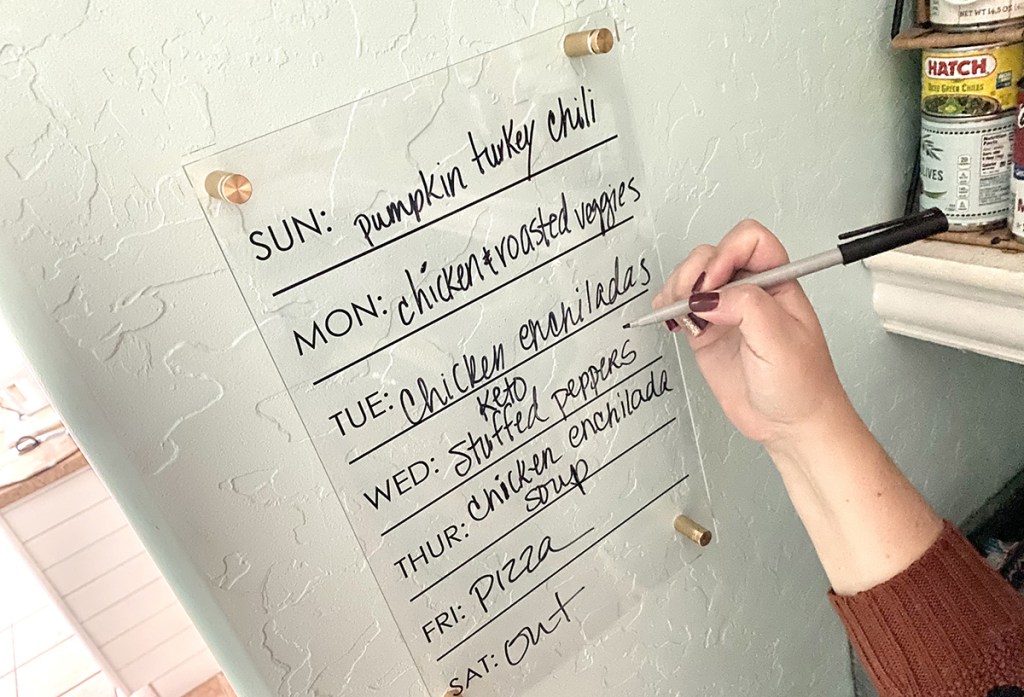 SUN: pumpkin turkey chili
MON: chicken & roasted veggies
TUE: chicken enchiladas
keto
WED: stuffed peppers
THUR: chicken enchilada
soup
FRI: pizza
SAT: out
NET WT 14.5 OZ
HATCH
GREEN CHILES
LIVES
Nutrition
Facts